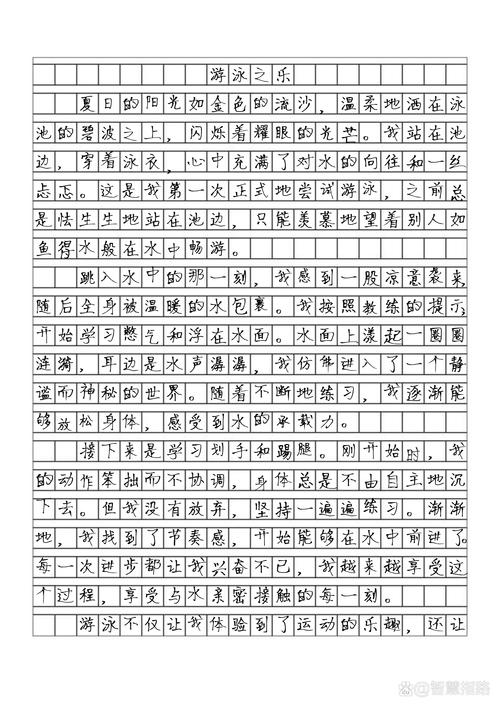 游泳之乐
夏日的阳光如金色的流沙，温柔地洒在泳
池的碧波之上，闪烁着耀眼的光芒。我站在池
边，穿着泳衣，心中充满了对水的向往和一丝
忐忑。这是我第一次正式地尝试游泳，之前总
是怯生生地站在池边，只能羡慕地望着别人如
鱼得水般在水中畅游。
跳入水中的那一刻，我感到一股凉意袭来，
随后全身被温暖的水包裹。我按照教练的提示，
开始学习憋气和浮在水面。水面上漾起一圈圈
涟漪，耳边是水声潺潺，我仿佛进入了一个静
谧而神秘的世界。随着不断地练习，我逐渐能
够放松身体，感受到水的承载力。
接下来是学习划手和踢腿。刚开始时，我
的动作笨拙而不协调，身体总是不由自主地沉
下去。但我没有放弃，坚持一遍遍练习。渐渐
地，我找到了节奏感，开始能够在水中前进了。
每一次进步都让我兴奋不已，我越来越享受这
个过程，享受与水亲密接触的每一刻。
游泳不仅让我体验到了运动的乐趣，还让
智慧指路